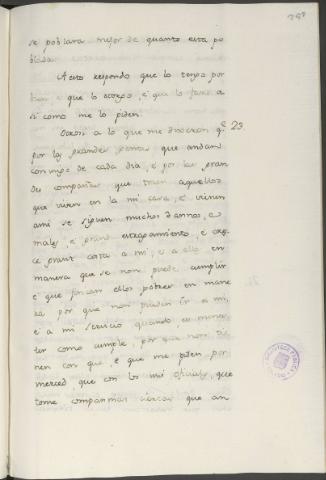 297
se poblara mejor de quanto esta po
blada.
A esto respondo que lo tengo por
bien, e que lo otorgo, e que lo fare a
si como me lo piden.
Otrosi a lo que me dixieron q.e 23.
por las grandes contias que andan
conmigo de cada dia, e por las gran
des compañas que traen aquellos
que viven en la mi casa, e vienen
a mi se siguen muchos dannos, e
males, e grand estragamiento, e cre
ce grant costa a mi, e a ello en
manera que se non puede cumplir
e que fincan ellos pobres en mane
ra por que non pueden ir a mi,
e a mi servicio quando es menes
ter como cumple, por que non tie
nen con que, e que me piden por
merced, que con los mi oficiales, que
tome compannas ciertas que an